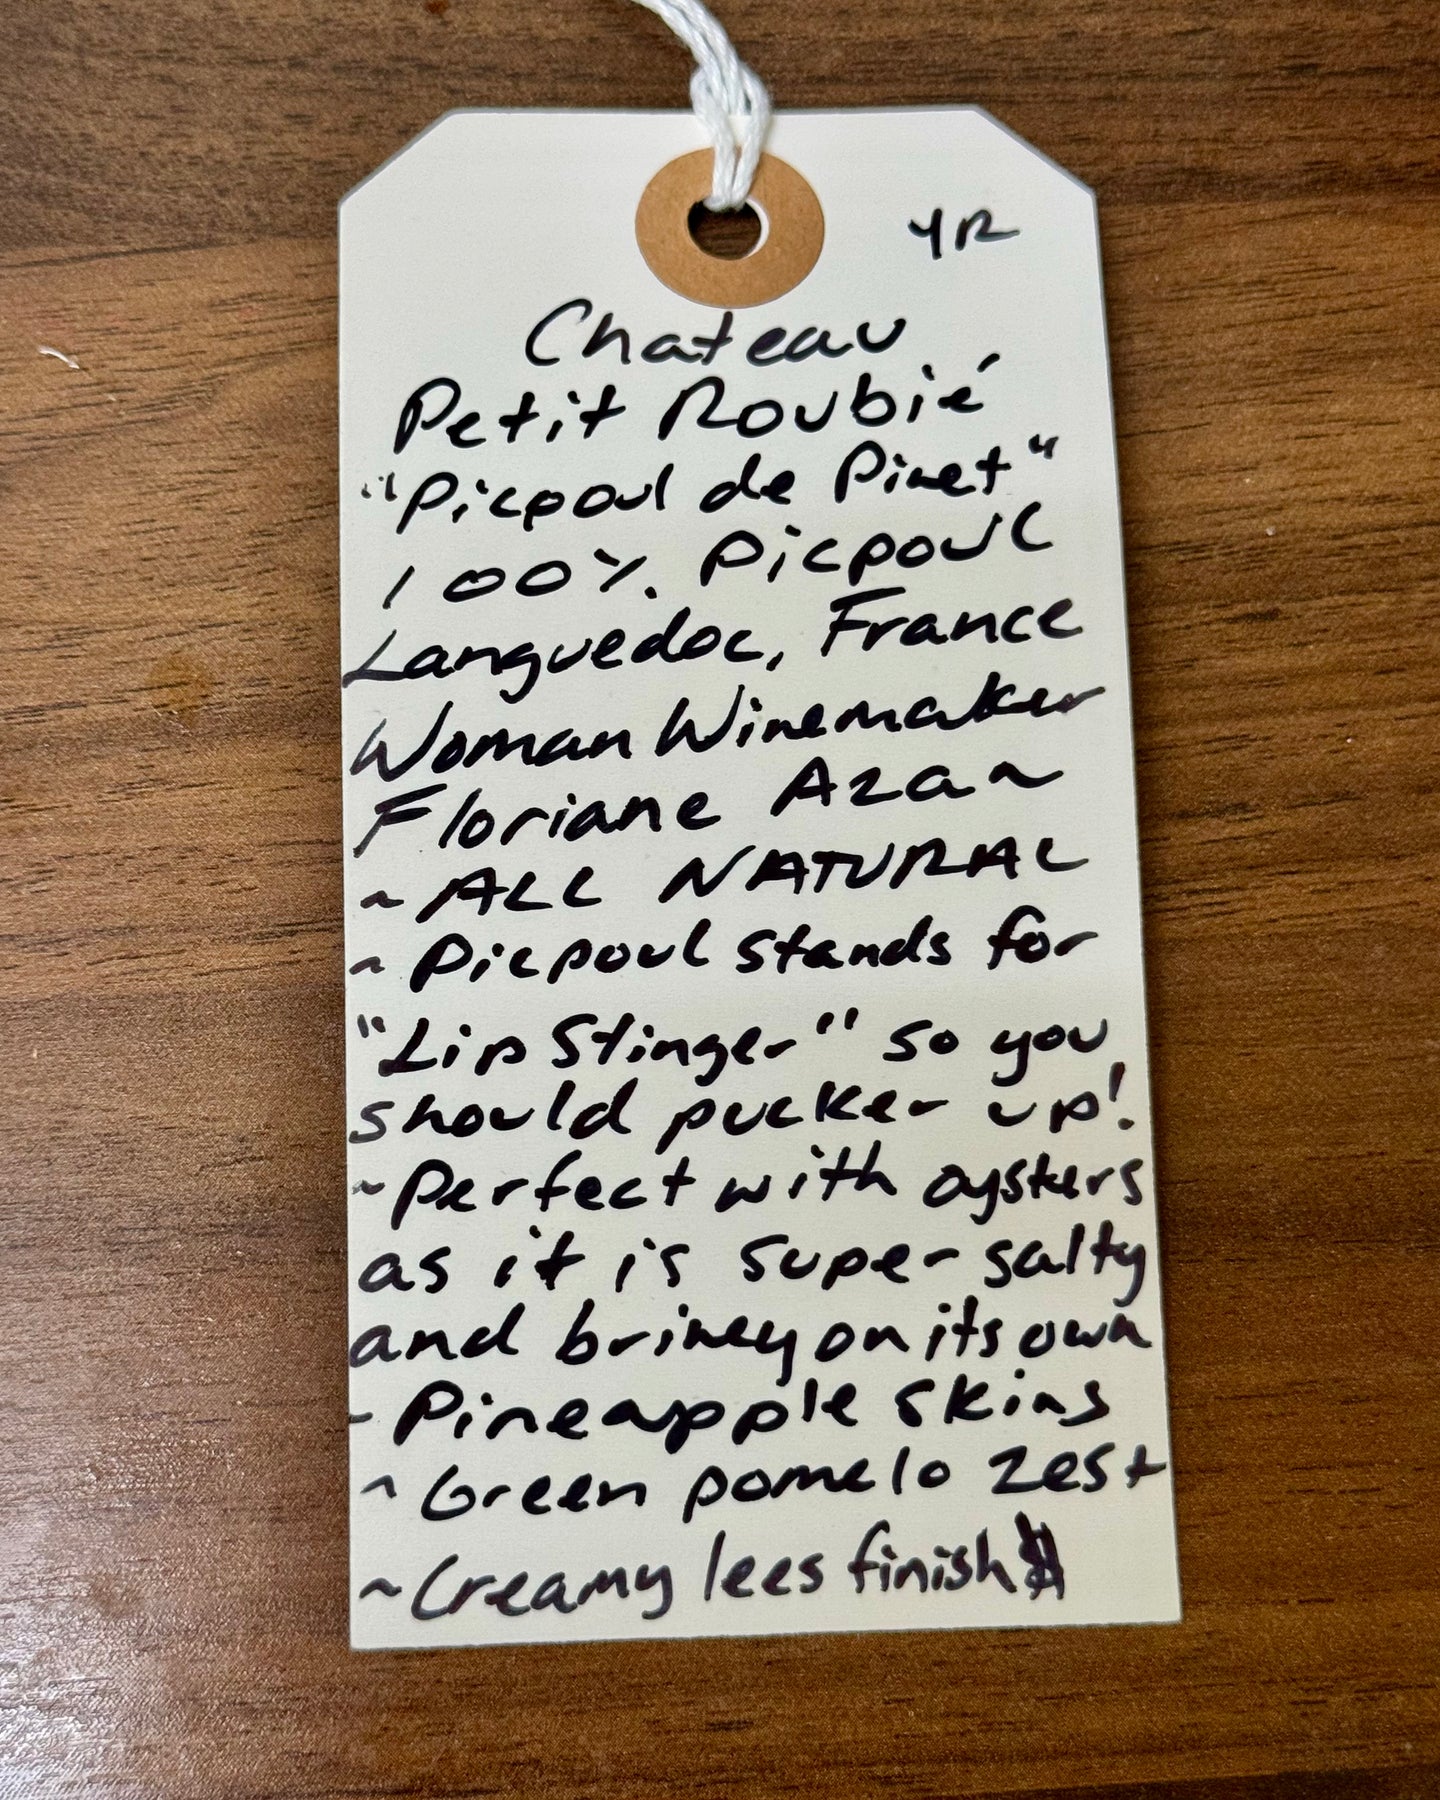 YR
Chateau
Petit Roubié
"Picpoul de Pinet"
100% Picpoul
Languedoc, France
Woman Winemaker
Floriane Azan
~ ALL NATURAL
~ Picpoul stands for
"Lip Stinger" so you
should pucker up!
~ Perfect with oysters
as it is super salty
and briney on its own
~ Pineapple skins
~ Green pomelo zest
~ Creamy lees finish